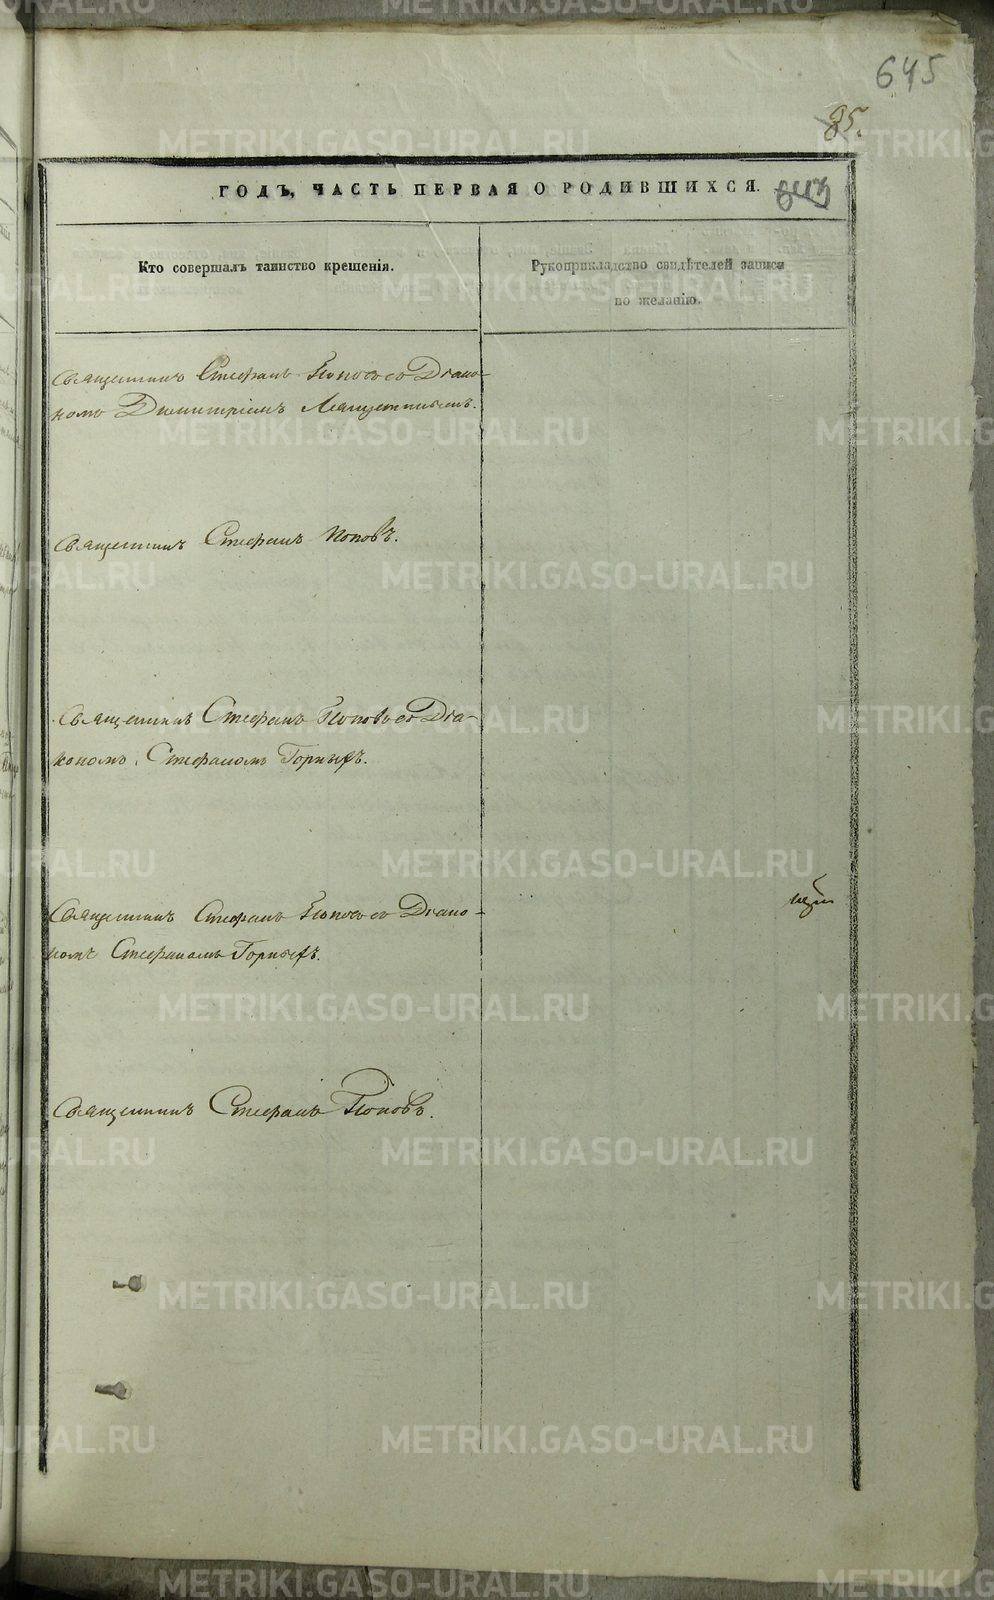 645
85.
ГОДЪ, ЧАСТЬ ПЕРВАЯ О РОДИВШИХСЯ.
643
Кто совершалъ таинство крещенія.
Рукоприкладство свидѣтелей записи
по желанію.
Священникъ Стефанъ Поповъ съ Діако-
номъ Димитріемъ
Священникъ Стефанъ Поповъ.
Священникъ Стефанъ Поповъ съ Діа-
кономъ Стефаномъ Горныхъ.
Священникъ Стефанъ Поповъ съ Діако-
номъ Стефаномъ Горныхъ.
Священникъ Стефанъ Поповъ.
METRIKI.GASO-URAL.RU